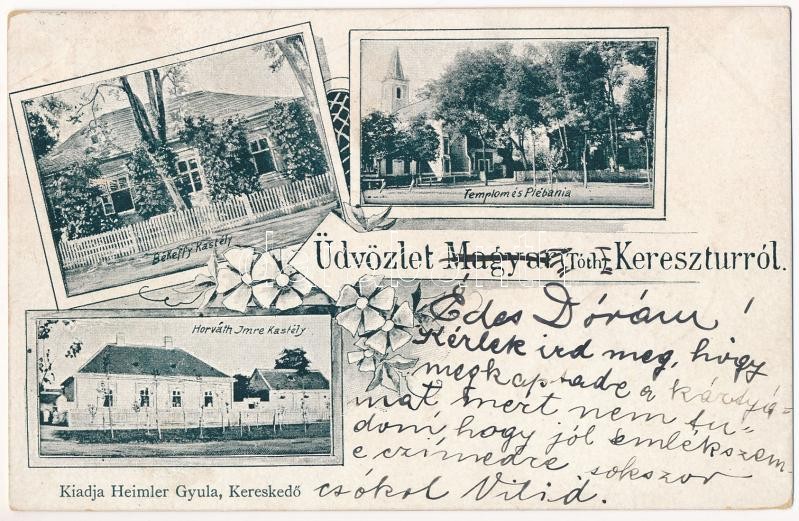 Templom és Plébánia
Békeffy Kastély
Üdvözlet Magyar (Tóth) Kereszturról.
Horváth Imre Kastély
Édes Dórám!
Kérlek ird meg, hogy
megkaptad e a kártyá-
mat mert nem tu-
dom hogy jól emlékszem-
e czimedre sokszor
csókol Vilid.
Kiadja Heimler Gyula, Kereskedő